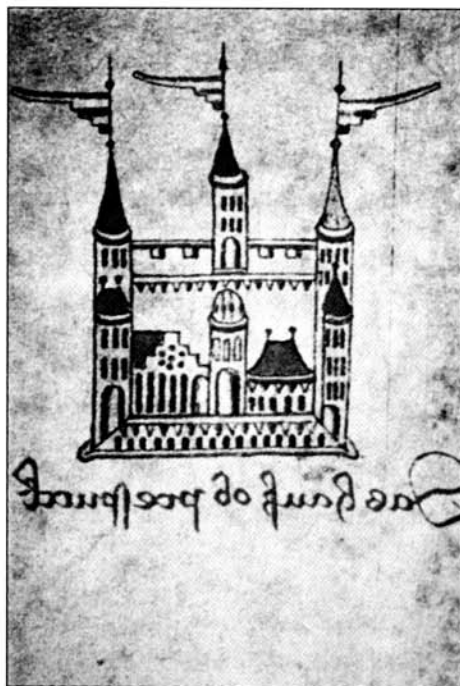 Das hauß ob preſpurck